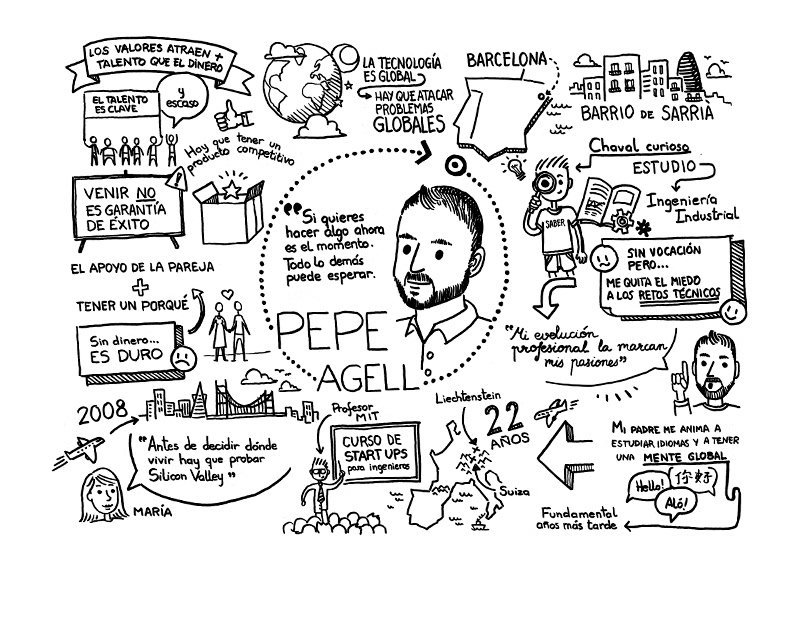 LOS VALORES ATRAEN +
TALENTO QUE EL DINERO
EL TALENTO
ES CLAVE
y
escaso
Hay que tener un
producto competitivo
LA TECNOLOGÍA
ES GLOBAL
HAY QUE ATACAR
PROBLEMAS
GLOBALES
BARCELONA
BARRIO DE SARRIÀ
Chaval curioso
ESTUDIO
Ingeniería
Industrial
SABER
SIN VOCACIÓN
PERO...
ME QUITA EL MIEDO
A LOS RETOS TÉCNICOS
"Mi evolución
profesional la marcan
mis pasiones"
MI PADRE ME ANIMA A
ESTUDIAR IDIOMAS Y A TENER
UNA MENTE GLOBAL
Hello!
你好
Aló!
Fundamental
años más tarde
22
AÑOS
Liechtenstein
Suiza
Profesor
MIT
CURSO DE
START UPS
para ingenieros
2008
"Antes de decidir dónde
vivir hay que probar
Silicon Valley"
MARÍA
VENIR NO
ES GARANTÍA
DE ÉXITO
EL APOYO DE LA PAREJA
+
TENER UN PORQUÉ
Sin dinero...
ES DURO
"Si quieres
hacer algo ahora
es el momento.
Todo lo demás
puede esperar.
PEPE
AGELL